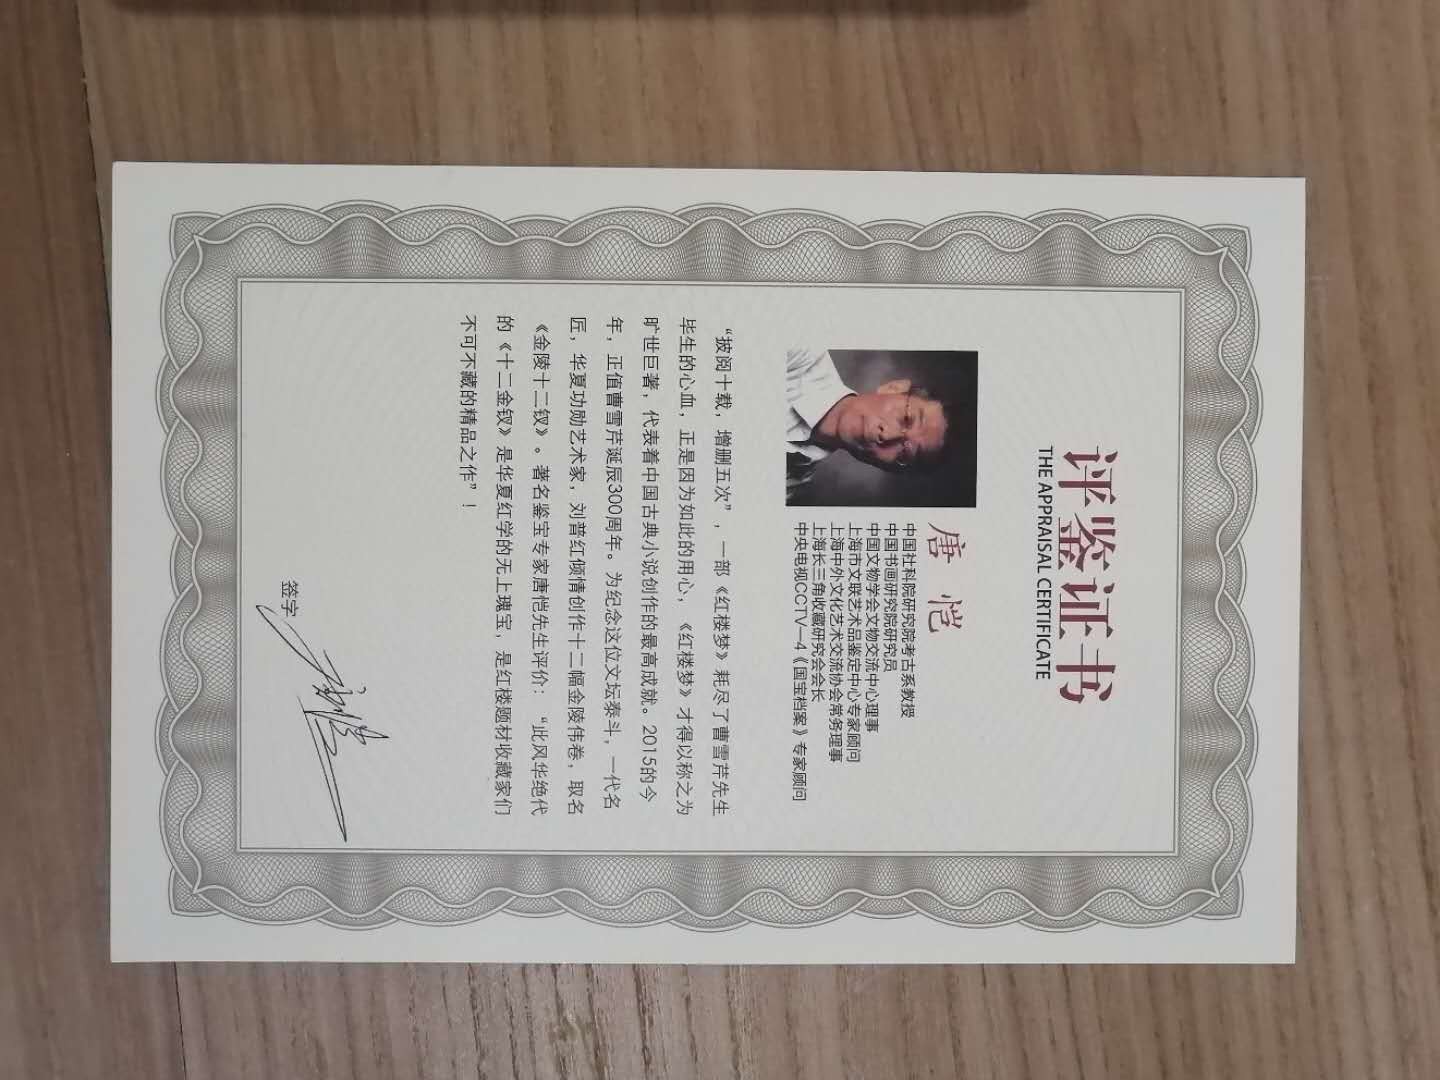 评鉴证书
THE APPRAISAL CERTIFICATE
唐恺
中国社科院研究院考古系教授
中国书画研究院研究员
中国文物学会文物交流中心理事
上海市文联艺术品鉴定中心专家顾问
上海中外文化艺术交流协会常务理事
上海长三角收藏研究会会长
中央电视CCTV—4《国宝档案》专家顾问
“披阅十载，增删五次”，一部《红楼梦》耗尽了曹雪芹先生
毕生的心血，正是因为如此的用心，《红楼梦》才得以称之为
旷世巨著，代表着中国古典小说创作的最高成就。2015的今
年，正值曹雪芹诞辰300周年。为纪念这位文坛泰斗，一代名
匠，华夏功勋艺术家，刘普红倾情创作十二幅金陵伟卷，取名
《金陵十二钗》。著名鉴宝专家唐恺先生评价：“此风华绝代
的《十二金钗》是华夏红学的无上瑰宝，是红楼题材收藏家们
不可不藏的精品之作”！
签字